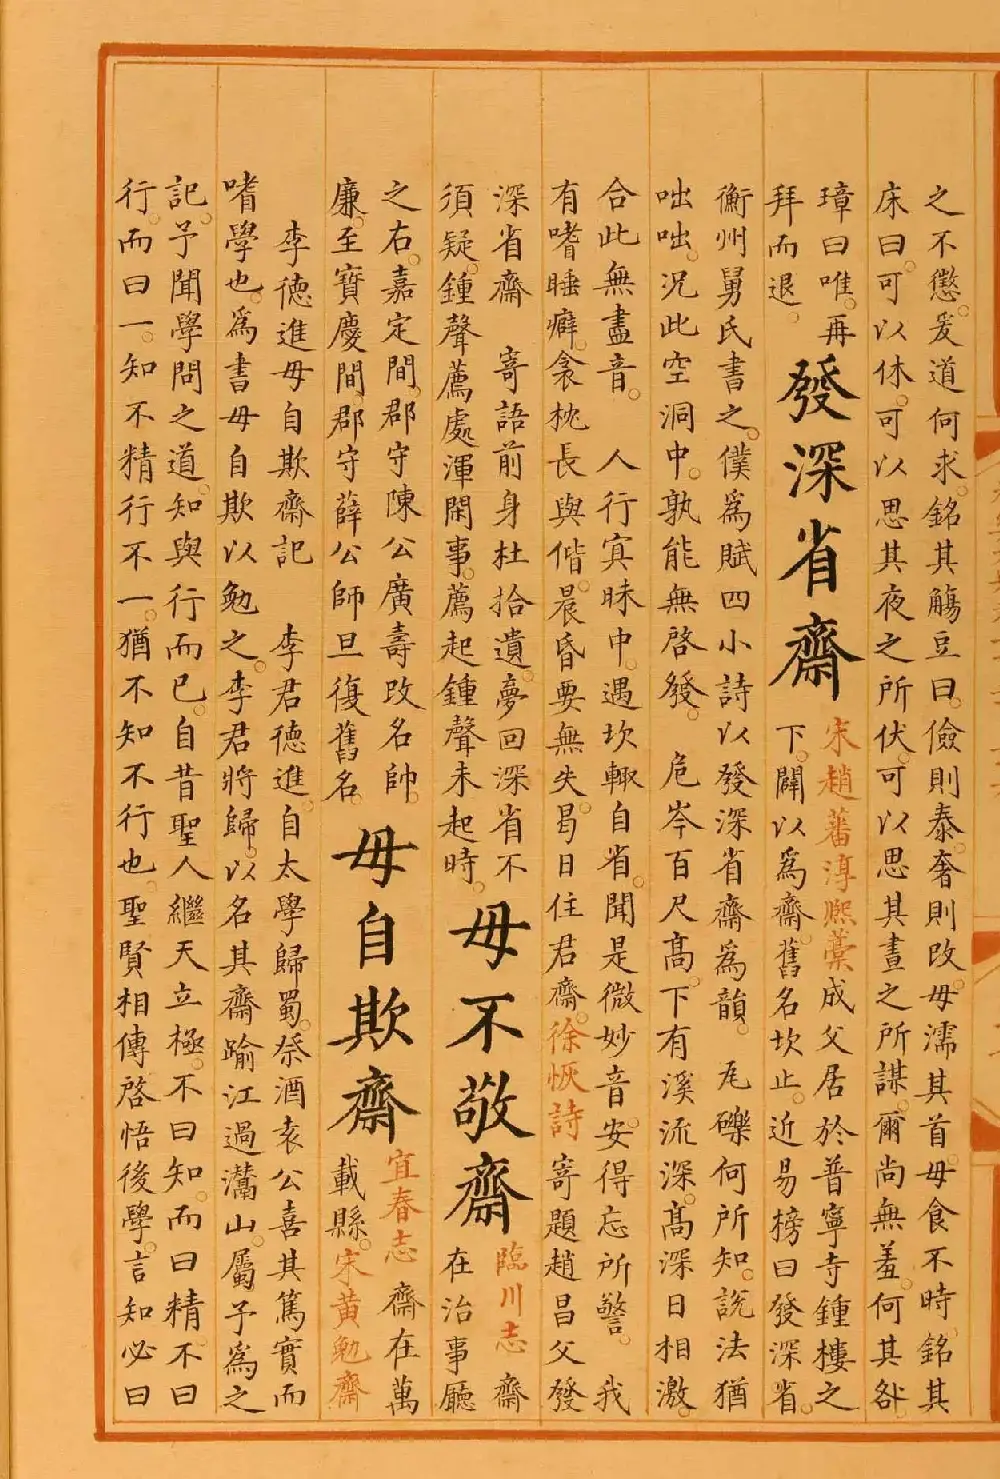 之不懲。爰道何求。銘其觴豆曰。儉則泰。奢則改。毋濡其首。毋食不時。銘其
床曰。可以休。可以思其夜之所伏。可以思其晝之所謀。爾尚無羞。何其咎。
璋曰唯。再
拜而退。
發深省齋
宋趙蕃淳熙藁 成父居於普寧寺鍾樓之
下。闢以爲齋。舊名坎止。近易榜曰發深省。
衡州舅氏書之。僕爲賦四小詩以發深省齋爲韻。 瓦礫何所知。說法猶
咄咄。況此空洞中。孰能無啓發。 危岑百尺高。下有溪流深。高深日相激。
合此無盡音。 人行㝠昧中。遇坎輙自省。聞是微妙音。安得忘所警。 我
有嗜睡癖。衾枕長與偕。晨昏要無失。曷日住君齋。徐恢詩 寄題趙昌父發
深省齋 寄語前身杜拾遺。夢回深省不
須疑。鍾聲薦處渾閑事。薦起鍾聲未起時。
毋不敬齋
臨川志 齋
在治事廳
之右。嘉定間。郡守陳公廣壽改名帥。
廉。至寶慶間。郡守薛公師旦復舊名。
毋自欺齋
宜春志 齋在萬
載縣。宋黃勉齋
李德進毋自欺齋記 李君德進。自太學歸蜀。祭酒袁公喜其篤實而
嗜學也。爲書毋自欺以勉之。李君將歸。以名其齋踰江過灊山。屬予爲之
記。予聞學問之道。知與行而已。自昔聖人繼天立極。不曰知。而曰精。不曰
行。而曰一。知不精行不一。猶不知不行也。聖賢相傳啓悟後學。言知必曰